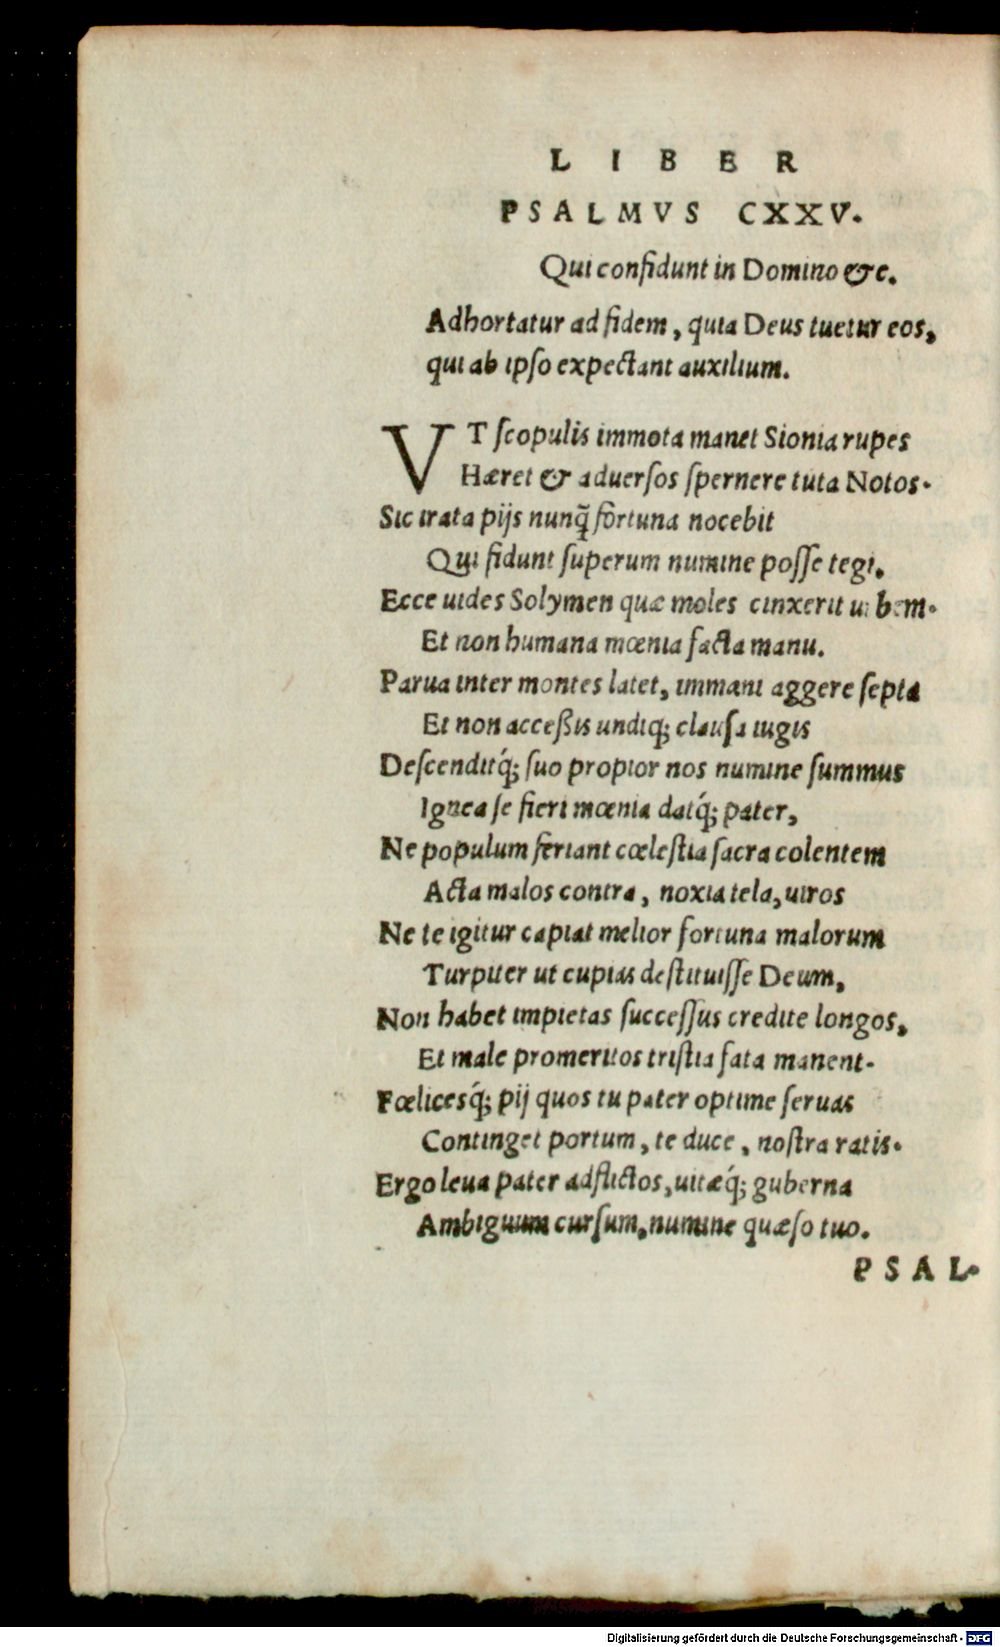 LIBER
PSALMVS CXXV.
Qui confidunt in Domino &c.
Adhortatur ad fidem, quia Deus tuetur eos,
qui ab ipſo expectant auxilium.
VT ſcopulis immota manet Sionia rupes
Hæret & aduerſos ſpernere tuta Notos.
Sic irata pijs nunq̃ fortuna nocebit
Qui fidunt ſuperum numine poſſe tegi.
Ecce uides Solymen quæ moles cinxerit urbem.
Et non humana mœnia facta manu.
Parua inter montes latet, immani aggere ſepta
Et non acceßis undiq; clauſa iugis
Deſcenditq́; ſuo propior nos numine ſummus
Ignea ſe fieri mœnia datq́; pater,
Ne populum feriant cœleſtia ſacra colentem
Acta malos contra, noxia tela, uiros
Ne te igitur capiat melior fortuna malorum
Turpiter ut cupias deſtituiſſe Deum,
Non habet impietas ſucceſſus credite longos,
Et male promeritos triſtia fata manent.
Fœlicesq́; pij quos tu pater optime ſeruas
Continget portum, te duce, noſtra ratis.
Ergo leua pater adflictos, uitæq́; guberna
Ambiguum curſum, numine quæſo tuo.
PSAL.
Digitalisierung gefördert durch die Deutsche Forschungsgemeinschaft - DFG